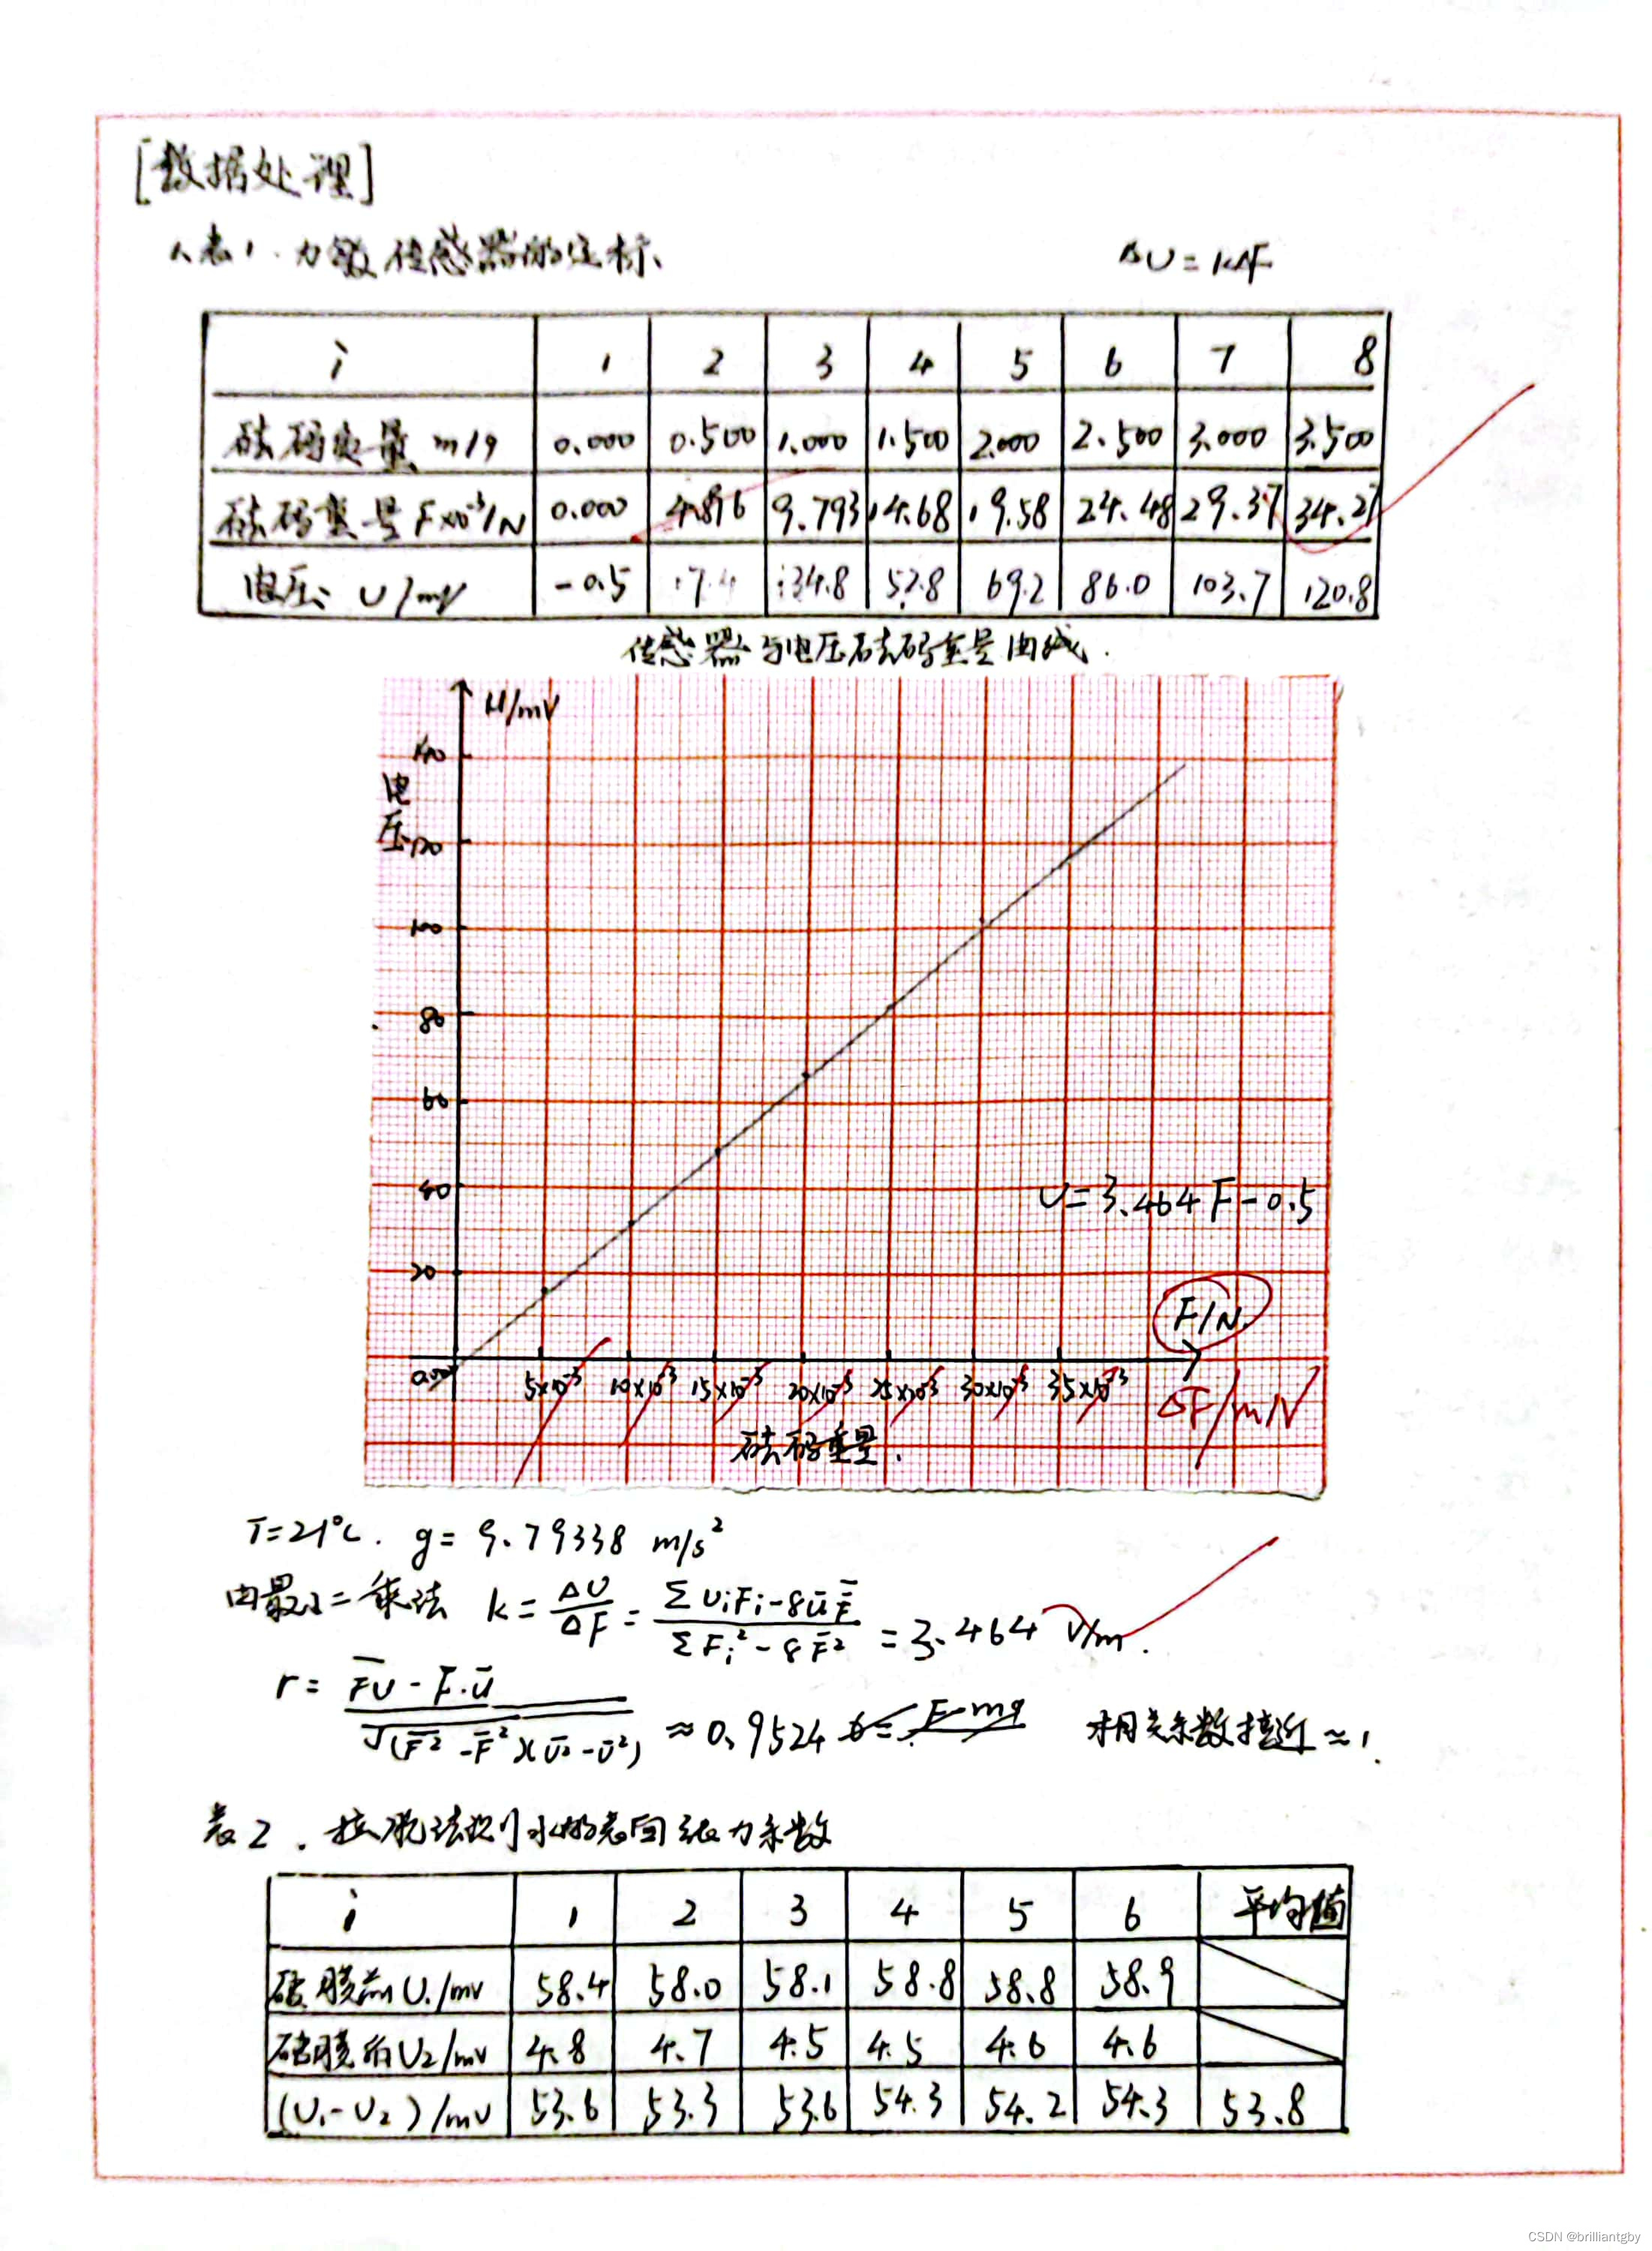 [数据处理]
1.表1.力敏传感器的定标、 ΔU=kΔF
i 1 2 3 4 5 6 7 8
砝码质量 m/g 0.000 0.500 1.000 1.500 2.000 2.500 3.000 3.500
砝码重量 F×10⁻³/N 0.000 4.896 9.793 14.68 19.58 24.48 29.37 34.27
电压: U/mV -0.5 17.4 34.8 52.8 69.2 86.0 103.7 120.8
传感器与电压砝码重量曲线.
U/mV
140
电
压 120
100
80
60
40
U=3.464F-0.5
20
F/N
0.00 5×10⁻³ 10×10⁻³ 15×10⁻³ 20×10⁻³ 25×10⁻³ 30×10⁻³ 35×10⁻³
ΔF/mN
砝码重量.
T=21°C. g=9.79338 m/s²
由最小二乘法 k=ΔU/ΔF=(ΣUiFi-8ŪF̄)/(ΣFi²-8F̄²)=3.464 V/m.
r=(F̄U-F̄·Ū)/√((F̄²-F̄²)(Ū²-Ū²))≈0.9524 相关系数接近≈1.
表2.拉脱法测水的表面张力系数
i 1 2 3 4 5 6 平均值
破膜前U₁/mV 58.4 58.0 58.1 58.8 58.8 58.9
破膜后U₂/mV 4.8 4.7 4.5 4.5 4.6 4.6
(U₁-U₂)/mV 53.6 53.3 53.6 54.3 54.2 54.3 53.8
CSDN @brilliantgby